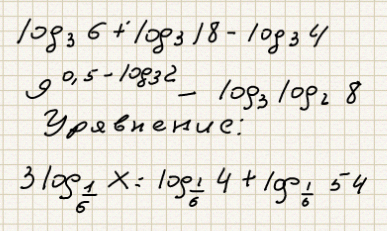 log₃ 6 + log₃ 18 - log₃ 4
9^(0,5 - log₃2) - log₃ log₂ 8
Уравнение:
3 log_(1/6) x = log_(1/6) 4 + log_(1/6) 54